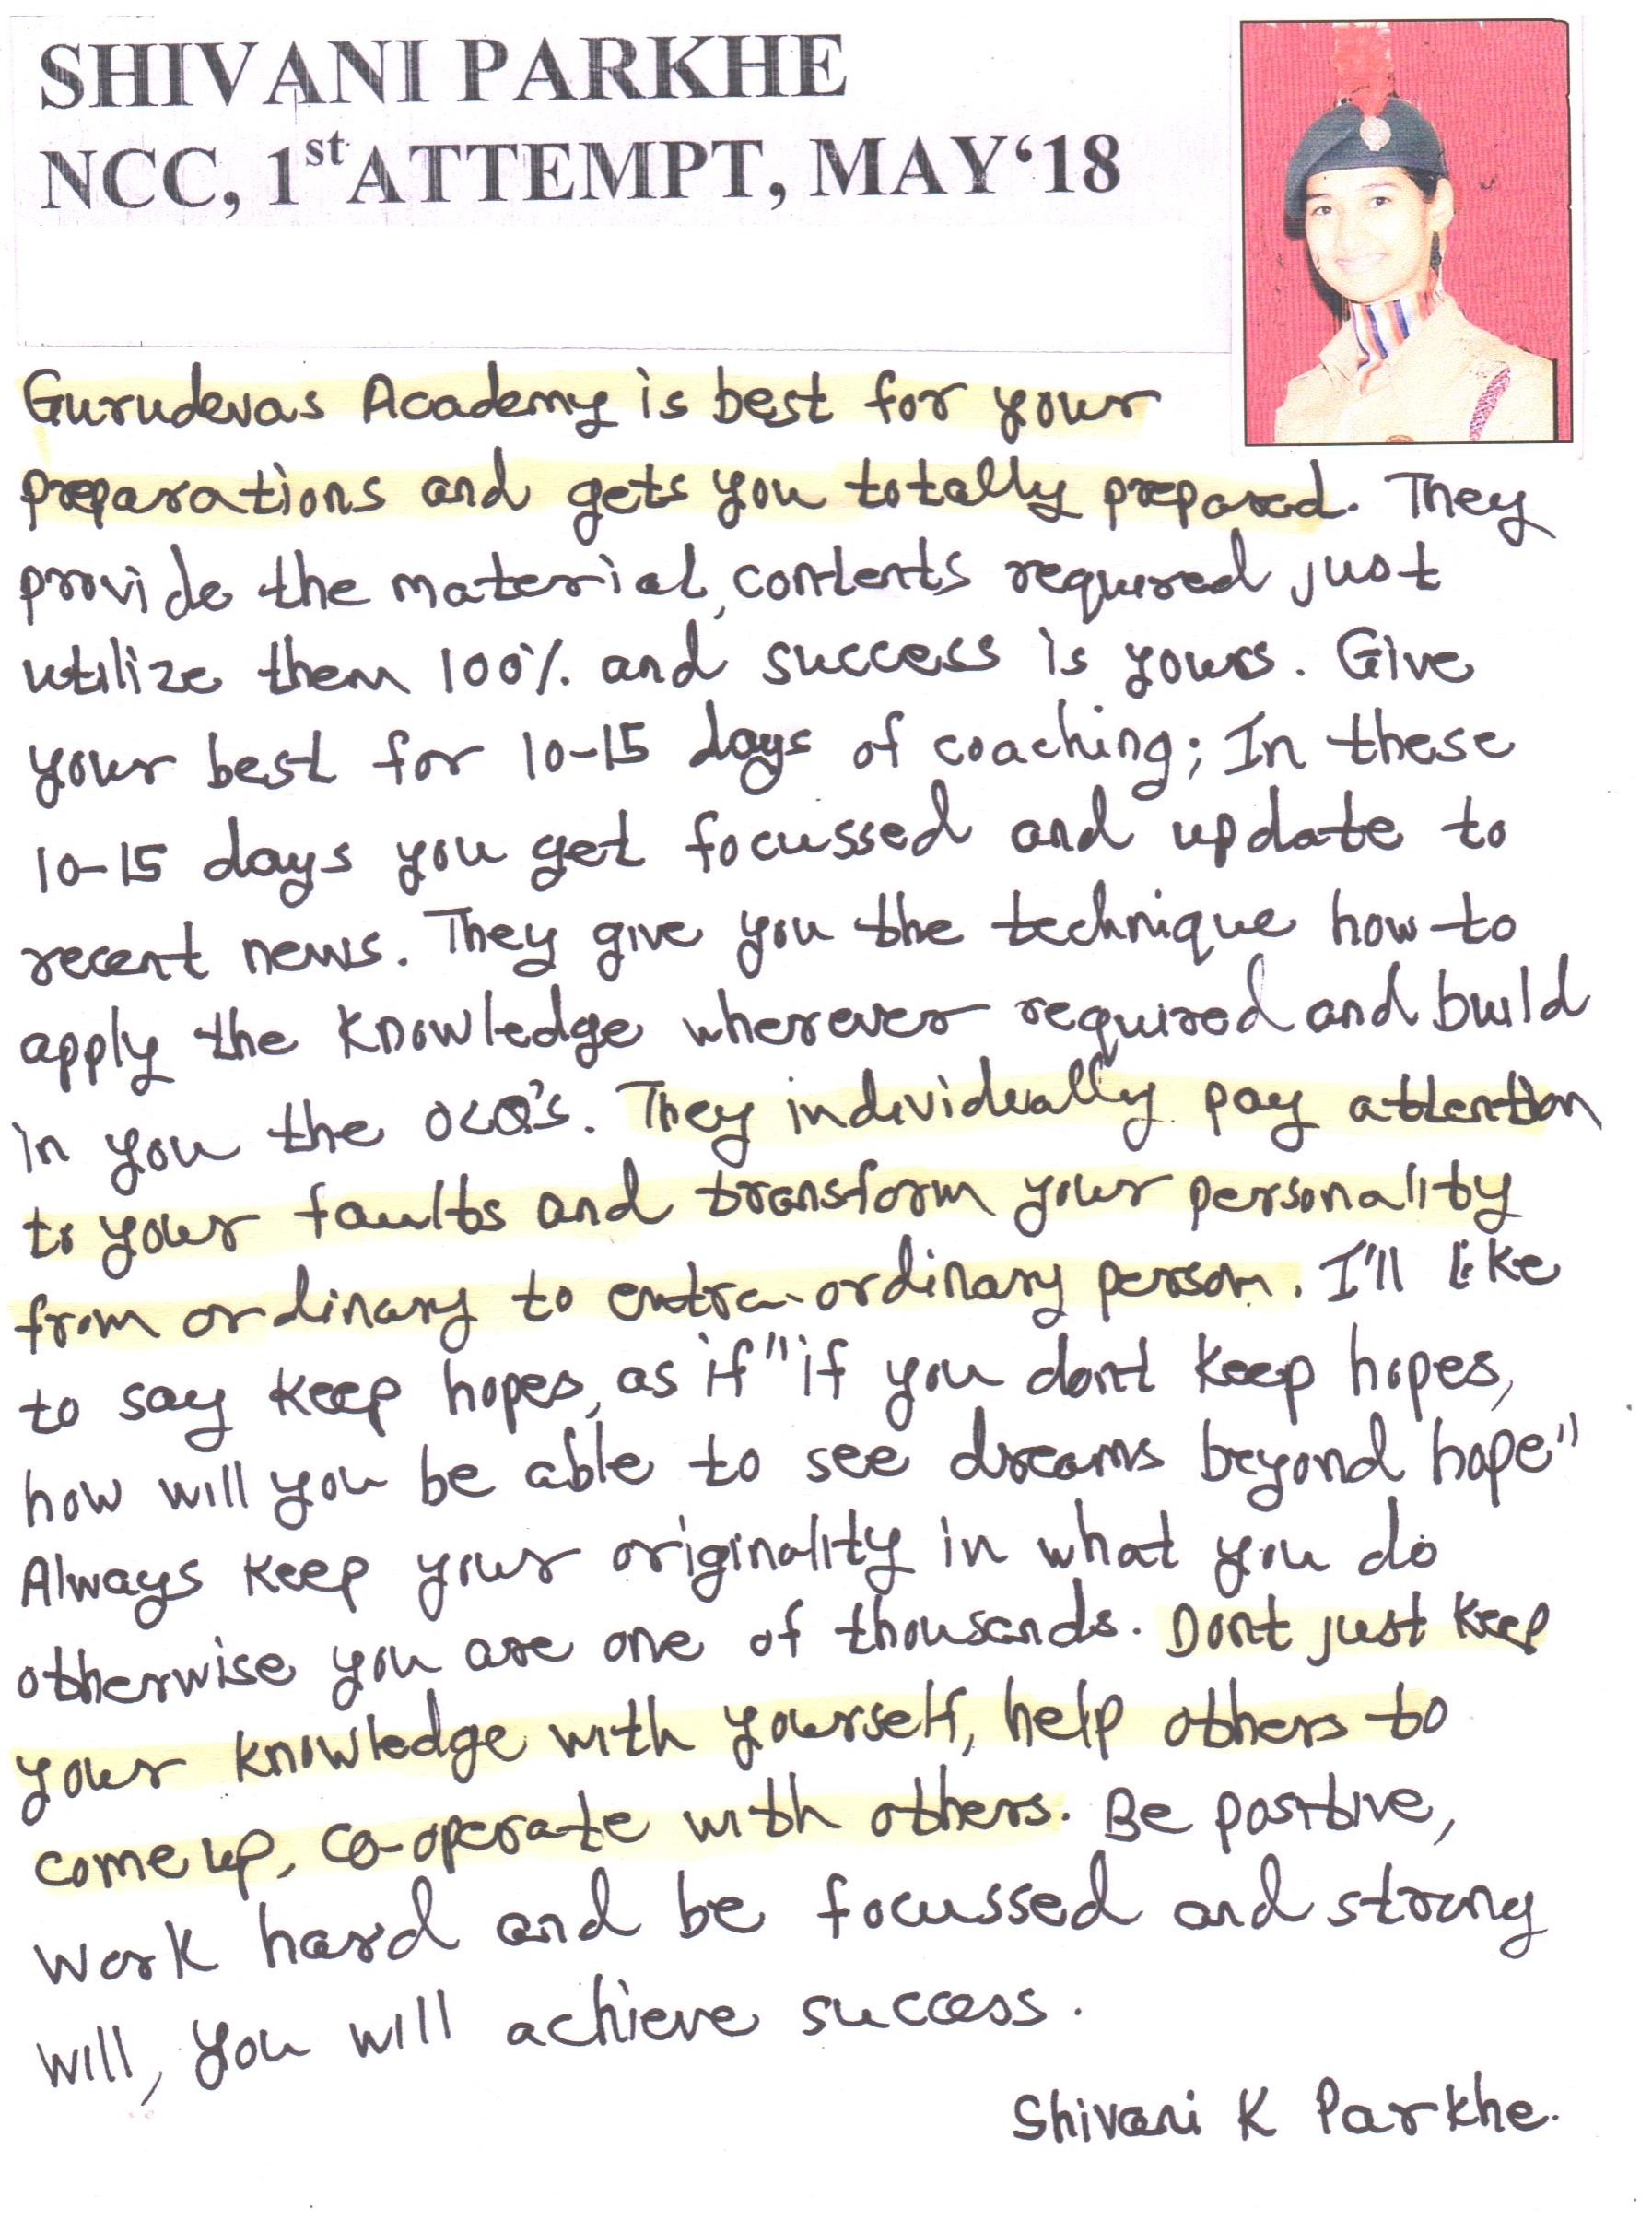 SHIVANI PARKHE
NCC, 1st ATTEMPT, MAY‘18
Gurudevas Academy is best for your
preparations and gets you totally prepared. They
provide the material, contents required just
utilize them 100% and success is yours. Give
your best for 10-15 days of coaching; In these
10-15 days you get focussed and update to
recent news. They give you the technique how to
apply the knowledge wherever required and build
in you the OLQ's. They individually pay attention
to your faults and transform your personality
from ordinary to extra-ordinary person. I'll like
to say keep hopes, as if "if you dont keep hopes,
how will you be able to see dreams beyond hope"
Always keep your originality in what you do
otherwise you are one of thousands. Dont just keep
your knowledge with yourself, help others to
come up, co-operate with others. Be positive,
work hard and be focussed and strong
will, you will achieve success.
Shivani K Parkhe.